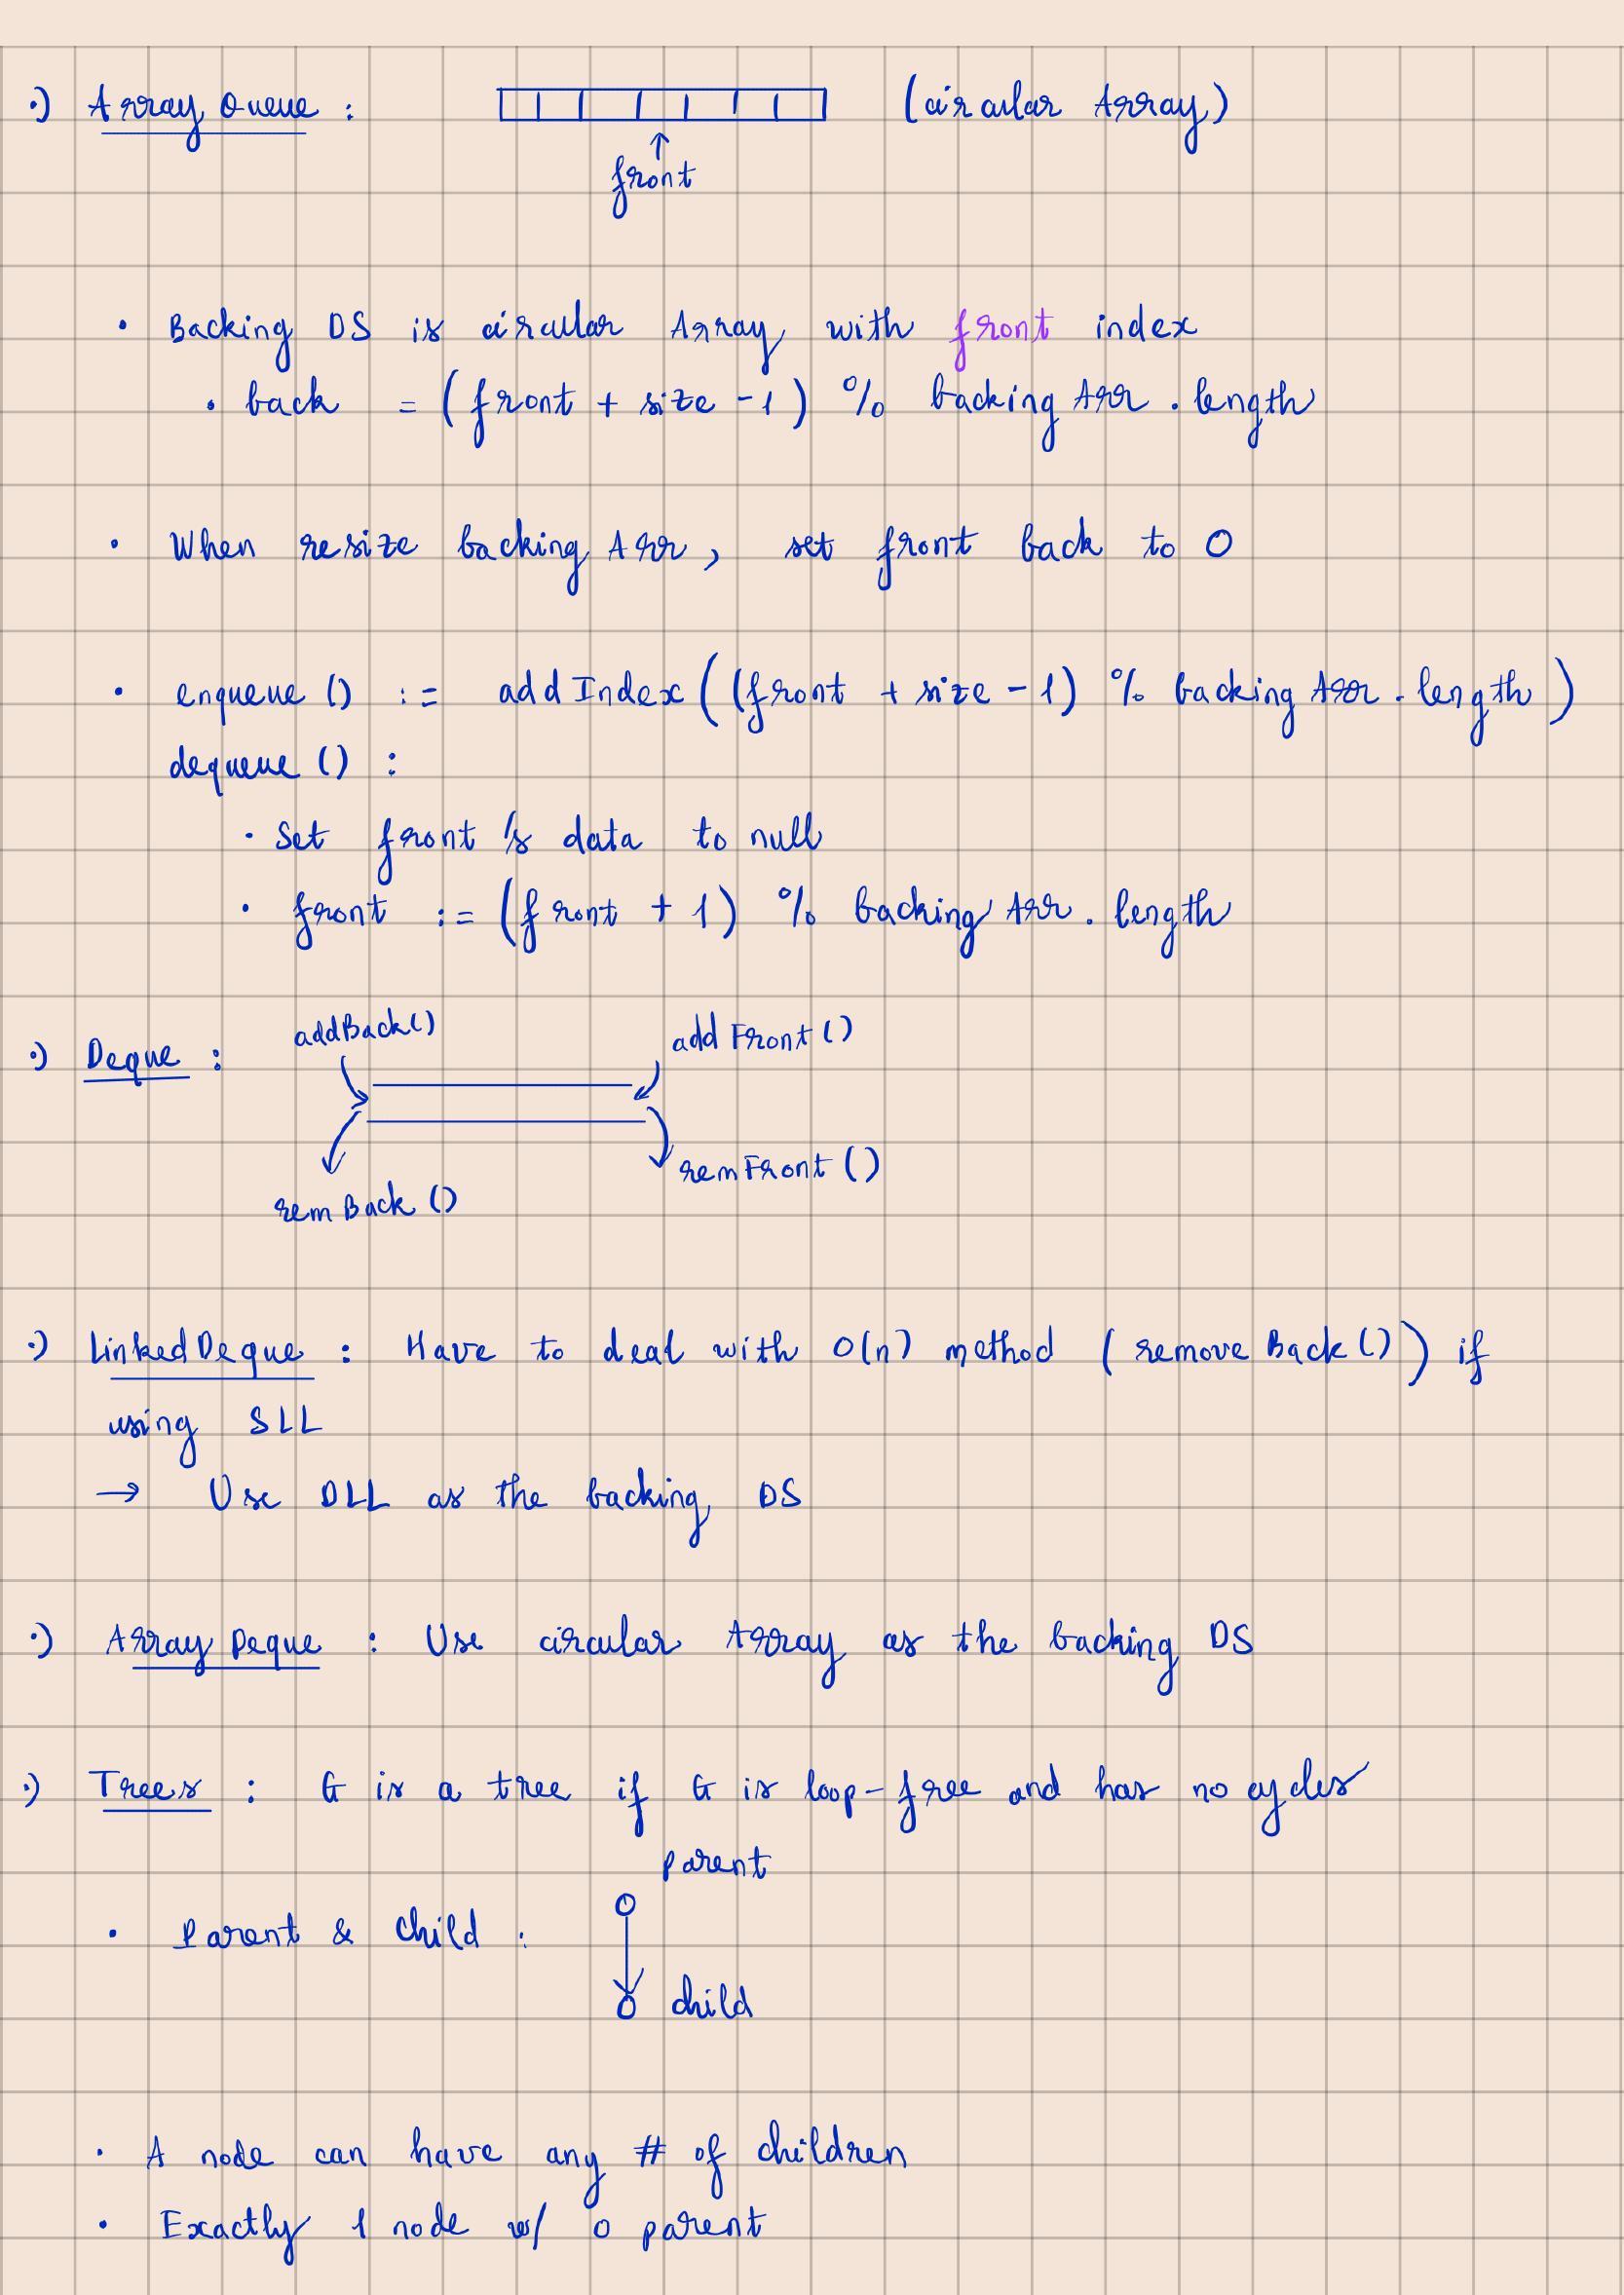 ·) Array Queue : (circular Array)
front
· Backing DS is circular Array with front index
· back = (front + size - 1) % backing Arr . length
· When resize backing Arr, set front back to 0
· enqueue () := add Index ((front + size - 1) % backing Arr . length)
dequeue () :
· Set front 's data to null
· front := (front + 1) % backing Arr . length
addBack() add Front ()
·) Deque :
remFront ()
rem Back ()
·) LinkedDeque : Have to deal with O(n) method (remove Back ()) if
using SLL
→ Use DLL as the backing DS
·) Array Deque : Use circular Array as the backing DS
·) Trees : G is a tree if G is loop-free and has no cycles
parent
· Parent & Child :
child
· A node can have any # of children
· Exactly 1 node w/ 0 parent